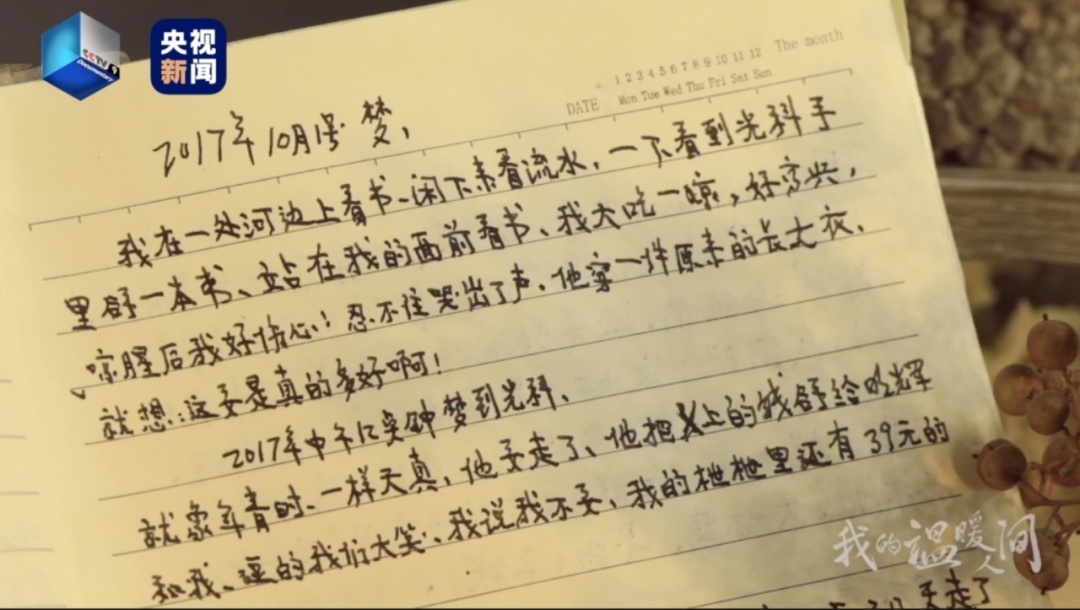 CCTV 9
Documentary
央视
新闻
1 2 3 4 5 6 7 8 9 10 11 12 The month
DATE Mon Tue Wed Thu Fri Sat Sun
2017年10月1号 梦,
我在一处河边上看书、闲下来看流水,一下看到光科手
里舒一本书、站在我的面前看书、我大吃一惊,好高兴,
惊醒后我好伤心!忍不住哭出了声、他穿一件原来的长大衣、
就想:这要是真的多好啊!
2017年中午12点钟梦到光科、
就象年青时、一样天真,他要走了、他把身上的钱舒给欧辉
和我、逗的我们大笑、我说我不要,我的枻枻里还有39元的
天走了
我的温暖人间